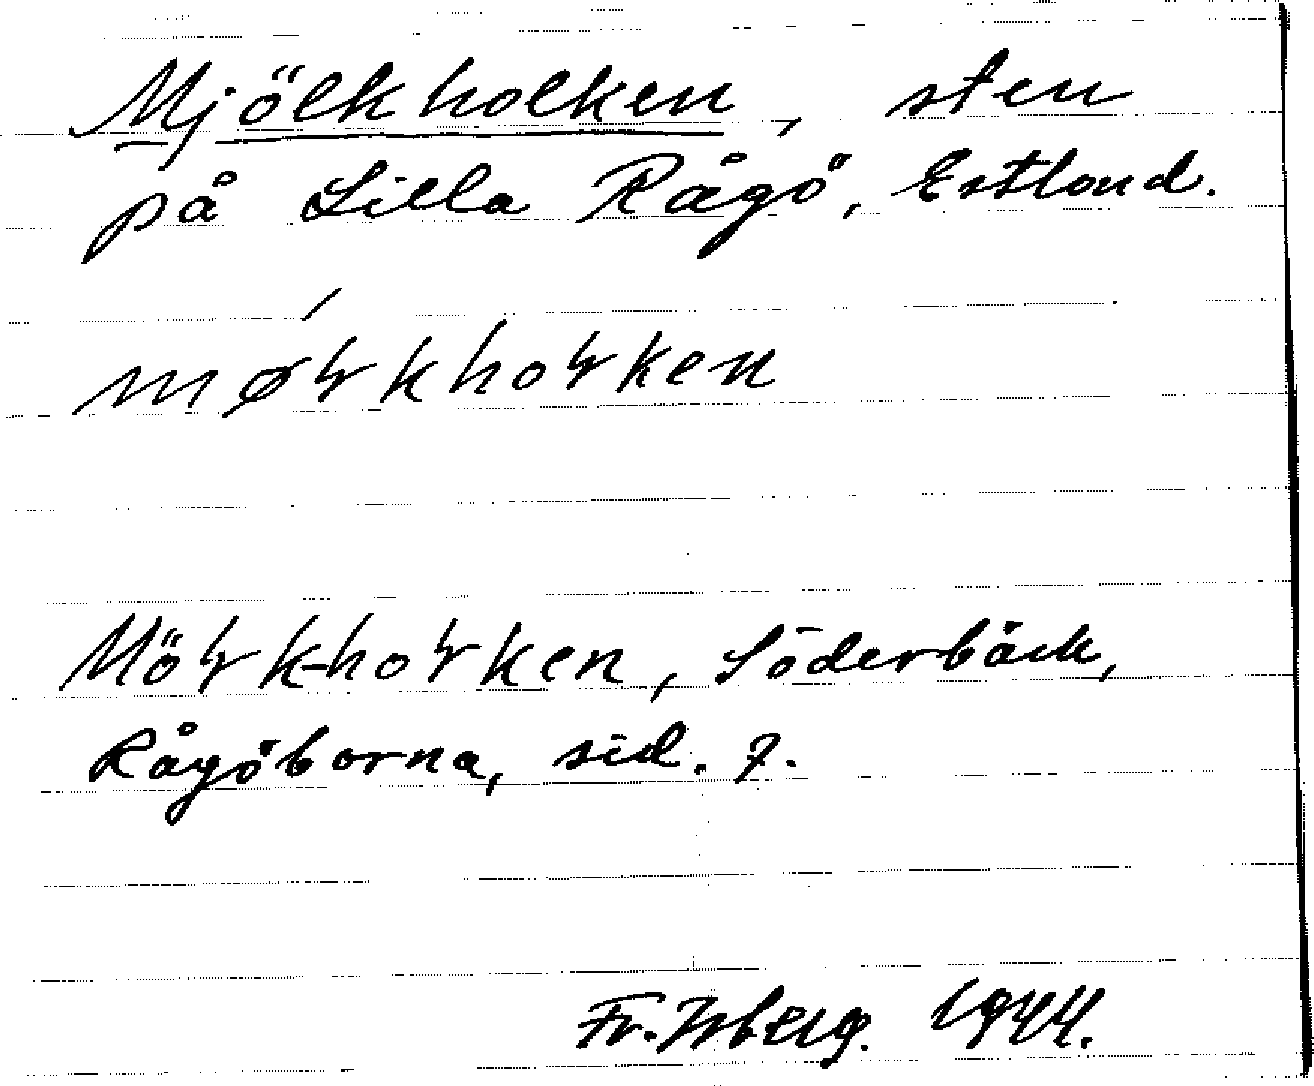 Mjölkholken, sten
på Lilla Rågö, Estland.
mǿɫkhoɫken
Möɫk-hoɫken, Söderbäck,
Rågöborna, sid. 7.
Fr. Isberg. 1944.